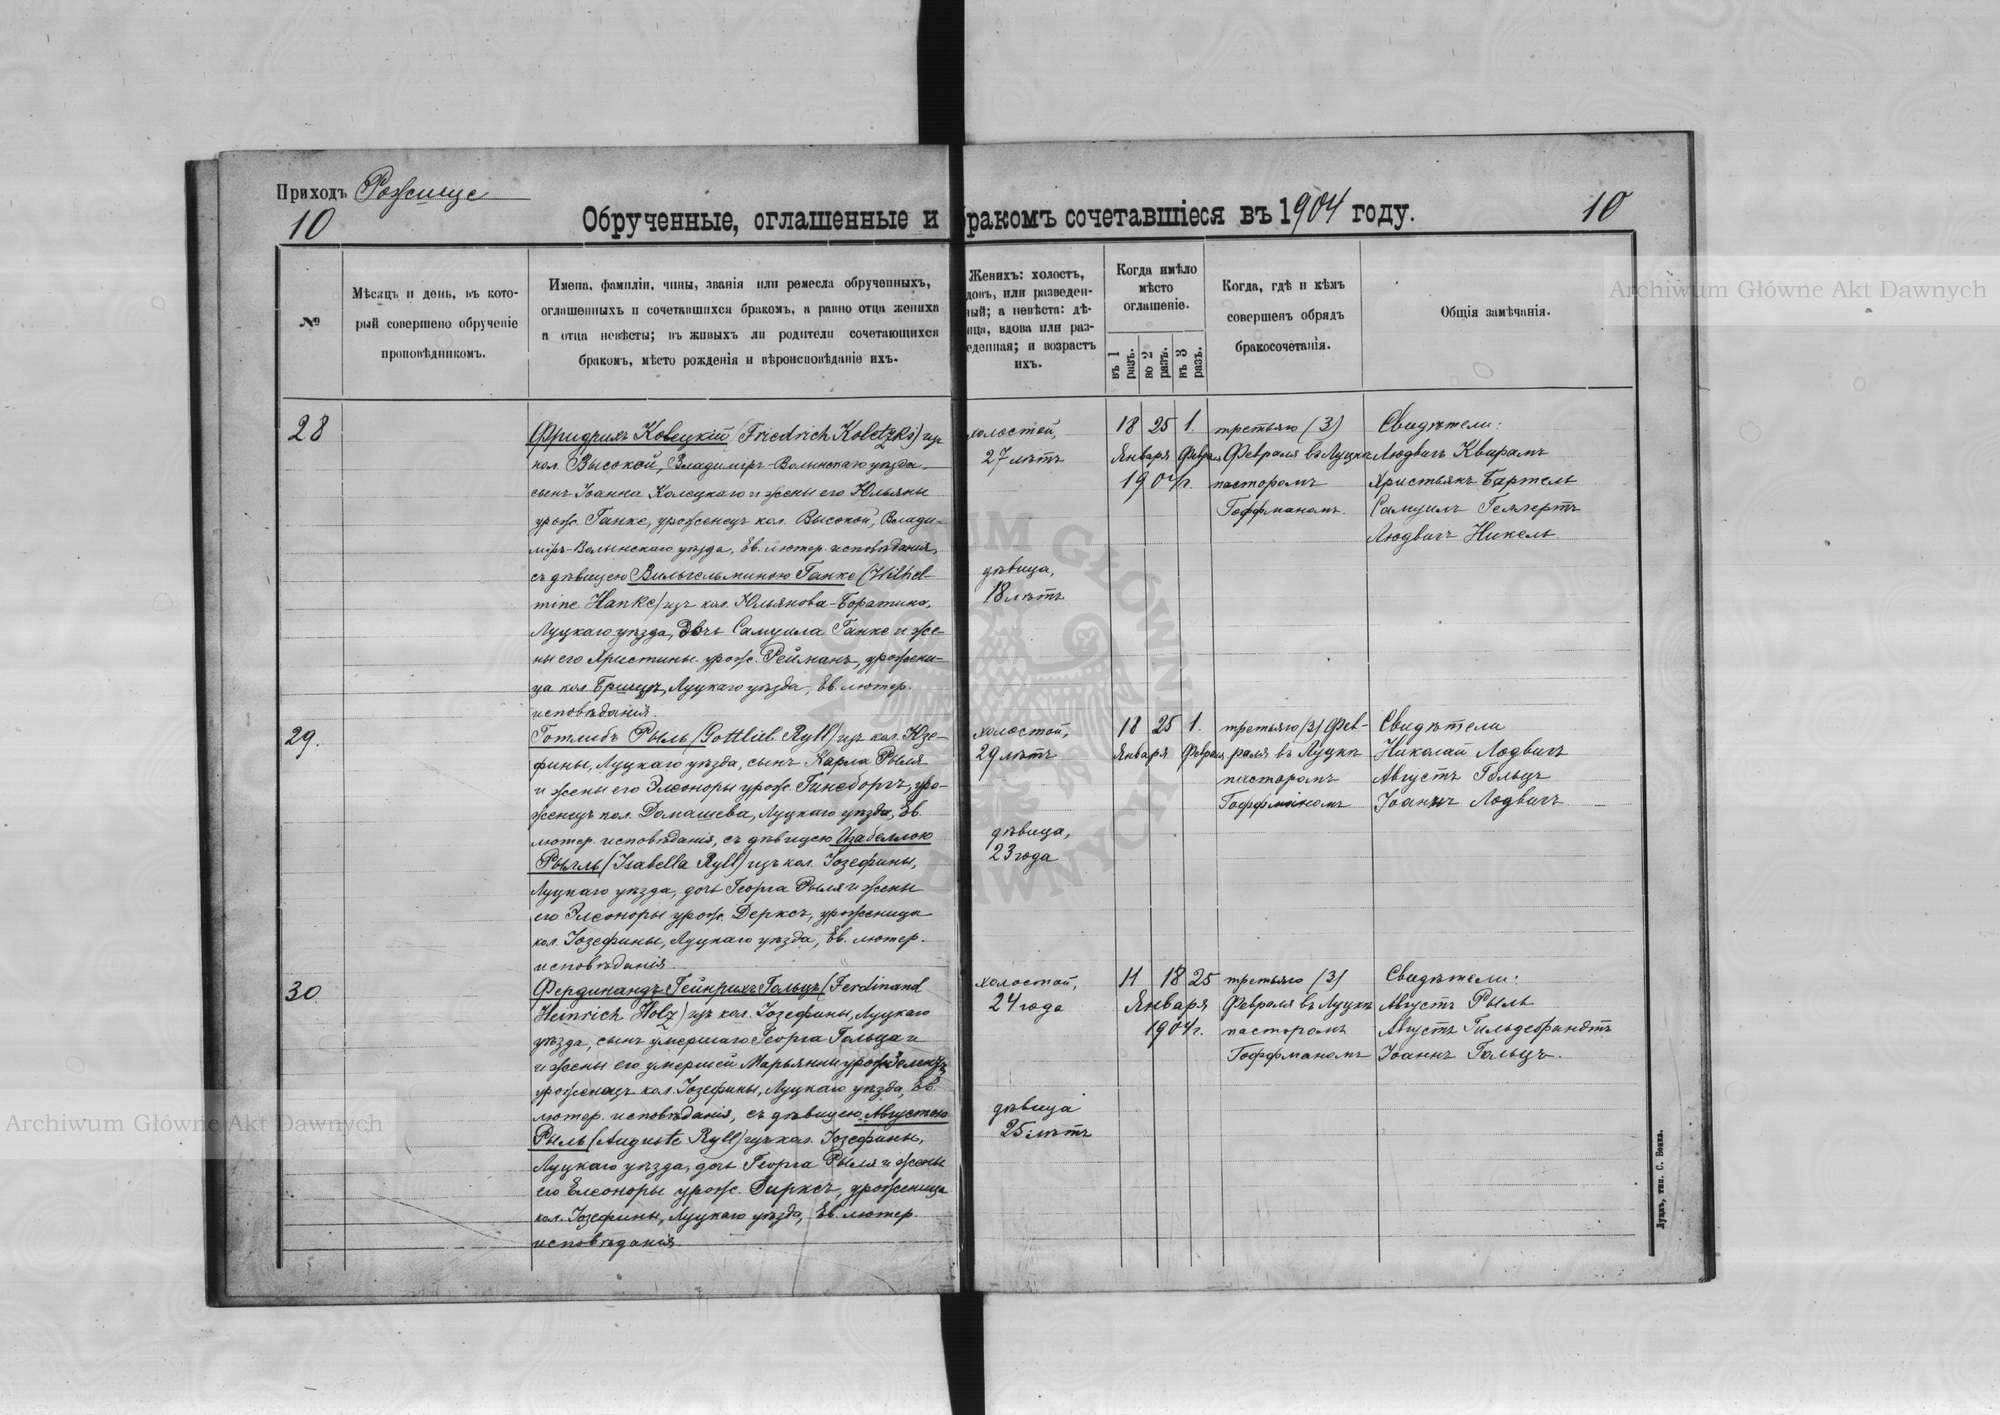 Приходъ Рожище
10
Обрученные, оглашенные и бракомъ сочетавшіеся въ 1904 году.
10
№
Мѣсяцъ и день, въ кото-
рый совершено обрученіе
проповѣдникомъ.
Имена, фамиліи, чины, званія или ремесла обрученныхъ,
оглашенныхъ и сочетавшихся бракомъ, а равно отца жениха
и отца невѣсты; въ живыхъ ли родители сочетающихся
бракомъ, мѣсто рожденія и вѣроисповѣданіе ихъ.
Женихъ: холостъ,
довъ, или разведен-
ный; а невѣста: дѣ-
ица, вдова или раз-
еденная; и возрастъ
ихъ.
Когда имѣло
мѣсто
оглашеніе.
въ 1 разъ.
во 2 разъ.
въ 3 разъ.
Когда, гдѣ и кѣмъ
совершенъ обрядъ
бракосочетанія.
Общія замѣчанія.
28
Фридрихъ Ковецкій (Friedrich Koletzki) изъ
кол. Высокой, Владиміръ-Волынскаго уѣзда,
сынъ Іоанна Колецкаго и жены его Юльяны
урож. Ганке, уроженецъ кол. Высокой, Влади-
міръ-Волынскаго уѣзда, Ев. лютер. исповѣданія,
съ дѣвицею Вильгельминою Ганке (Wilhel-
mine Hanke) изъ кол. Юльянова-Боратина,
Луцкаго уѣзда, дочь Самуила Ганке и же-
ны его Христины урож. Рейманъ, урожени-
ца кол. Луцкаго уѣзда, Ев. лютер.
исповѣданія.
холостой,
27 лѣтъ
дѣвица,
18 лѣтъ
18 25 1.
Января Февраля
1904 г.
третьяго (3)
Февраля въ Луцкѣ
пасторомъ
Гоффманомъ.
Свидѣтели:
Людвигъ Квирамъ
Христьянъ Бартель
Самуилъ Геллертъ
Людвигъ Никель
29.
Готлибъ Рыль (Gottlieb Ryll) изъ кол. Юзе-
фины, Луцкаго уѣзда, сынъ Карла Рыля
и жены его Элеоноры урож. Гинсборгъ, уро-
женецъ кол. Домашева, Луцкаго уѣзда, Ев.
лютер. исповѣданія, съ дѣвицею Изабеллою
Рылль (Isabella Ryll) изъ кол. Іозефины,
Луцкаго уѣзда, дочь Георга Рыля и жены
его Элеоноры урож. Дерксъ, уроженица
кол. Іозефины, Луцкаго уѣзда, Ев. лютер.
исповѣданія.
холостой,
29 лѣтъ
дѣвица,
23 года
18 25 1.
Января Февраля
третьяго (3) Фев-
раля въ Луцкѣ
пасторомъ
Гоффманомъ
Свидѣтели
Николай Лодвигъ
Августъ Гольцъ
Іоаннъ Лодвигъ
30
Фердинандъ Гейнрихъ Гольцъ (Ferdinand
Heinrich Holz) изъ кол. Іозефины, Луцкаго
уѣзда, сынъ умершаго Георга Гольца и
и жены его умершей Марьянны урож.
уроженецъ кол. Іозефины, Луцкаго уѣзда, Ев.
лютер. исповѣданія, съ дѣвицею Августою
Рыль (Auguste Ryll) изъ кол. Іозефины,
Луцкаго уѣзда, дочь Георга Рыля и жены
его Елеоноры урож. Дирксъ, уроженица
кол. Іозефины, Луцкаго уѣзда, Ев. лютер.
исповѣданія.
холостой,
24 года
дѣвица
25 лѣтъ
11 18 25
Января
1904 г.
третьяго (3)
Февраля въ Луцкѣ
пасторомъ
Гоффманомъ
Свидѣтели:
Августъ Рыль
Августъ Гильдебрандтъ
Іоаннъ Гольцъ.
Луцкъ, тип. С. Бенка.
Archiwum Główne Akt Dawnych
Archiwum Główne Akt Dawnych